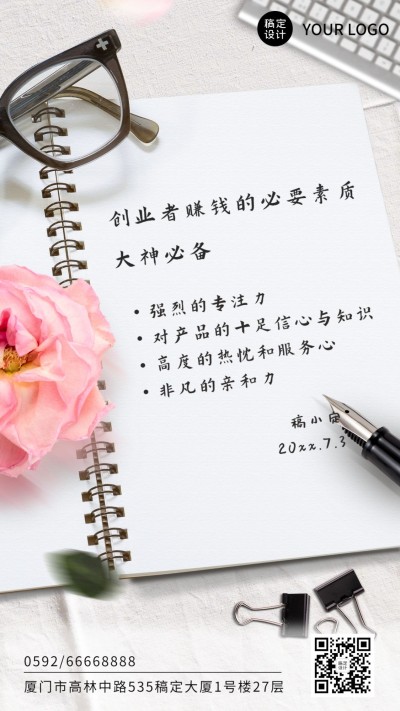 稿定
设计
YOUR LOGO
创业者赚钱的必要素质
大神必备
• 强烈的专注力
• 对产品的十足信心与知识
• 高度的热忱和服务心
• 非凡的亲和力
稿小定
20xx.7.3
0592/66668888
厦门市高林中路535稿定大厦1号楼27层